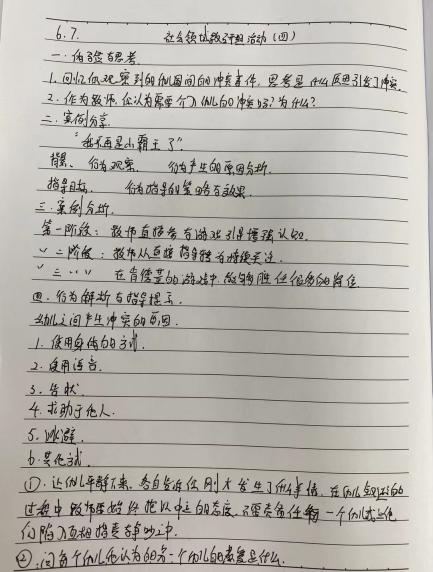 6.7. 社会领域教研组活动（四）
一、体验与思考.
1. 回忆你观察到的幼儿园间的冲突事件，思考是什么原因引发了冲突.
2. 作为教师，你认为需要介入幼儿的冲突吗？为什么？
二、案例分享.
“我不再是小霸王了”.
背景、行为观察、行为产生的原因分析.
指导目标、行为指导的策略与效果.
三、案例分析.
第一阶段：教师直接参与游戏引导增强认知.
〃二阶段：教师从直接指导转为持续关注.
〃三〃〃 在肯德基的游戏中，能够胜任任务的岗位
四、行为解析与指导提示.
幼儿之间产生冲突的原因.
1. 使用身体的方式.
2. 使用语言.
3. 告状.
4. 求助于他人.
5. 逃避.
6. 其他方式.
①. 让幼儿平静下来，各自告诉你刚才发生了什么事情，在幼儿的
过程中教师要始终抱以中立的态度，不要责备任何一个幼儿或让他
们陷入互相指责与争吵之中.
②. 问每个幼儿他认为的另一个幼儿的态度是什么.